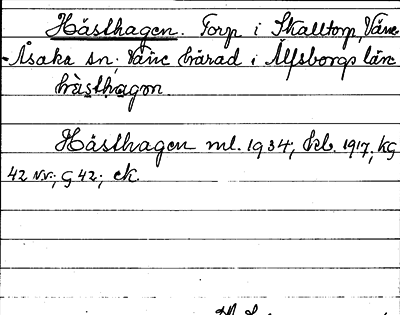 Hästhagen. Torp i Skalltorp, Väne
-Åsaka sn; Väne härad i Älfsborgs län
hàsthagon.
Hästhagen ml. 1934, hl. 1917, kg
42 NV.; G 42; ek.